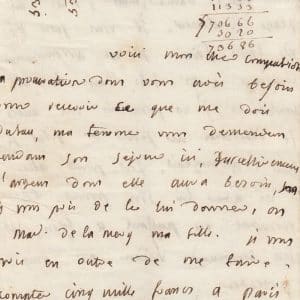 11 333
70666
30 20
73686
voici mon cher compatriote
procuration dont vous avés besoin
recevoir ce que me doit
ma femme vous demandera
pendant son sejour ici,
l'argent dont elle aura besoin,
vous prie de le lui donner, ou
de la mery ma fille. je vous
prie en outre de me faire
compter cinq mille francs a Paris